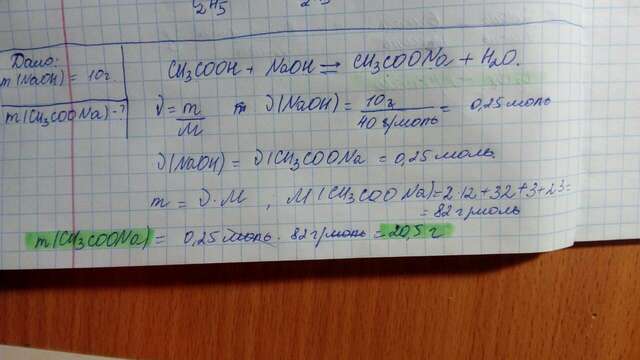 Дано:
m(NaOH) = 10г.
m(CH₃COONa) - ?
CH₃COOH + NaOH ⇌ CH₃COONa + H₂O.
ν = m/M ν(NaOH) = 10г/40 г/моль = 0,25 моль
ν(NaOH) = ν(CH₃COONa = 0,25 моль.
m = ν·M , M(CH₃COONa) = 2·12 + 32 + 3 + 23 =
= 82 г/моль
m(CH₃COONa) = 0,25 моль · 82 г/моль = 20,5 г